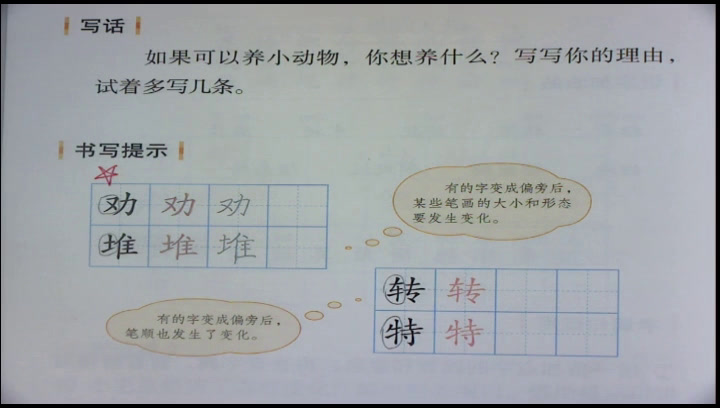 写话
如果可以养小动物，你想养什么？写写你的理由，
试着多写几条。
书写提示
劝 劝 劝
堆 堆 堆
有的字变成偏旁后，
某些笔画的大小和形态
要发生变化。
转 转
特 特
有的字变成偏旁后，
笔顺也发生了变化。